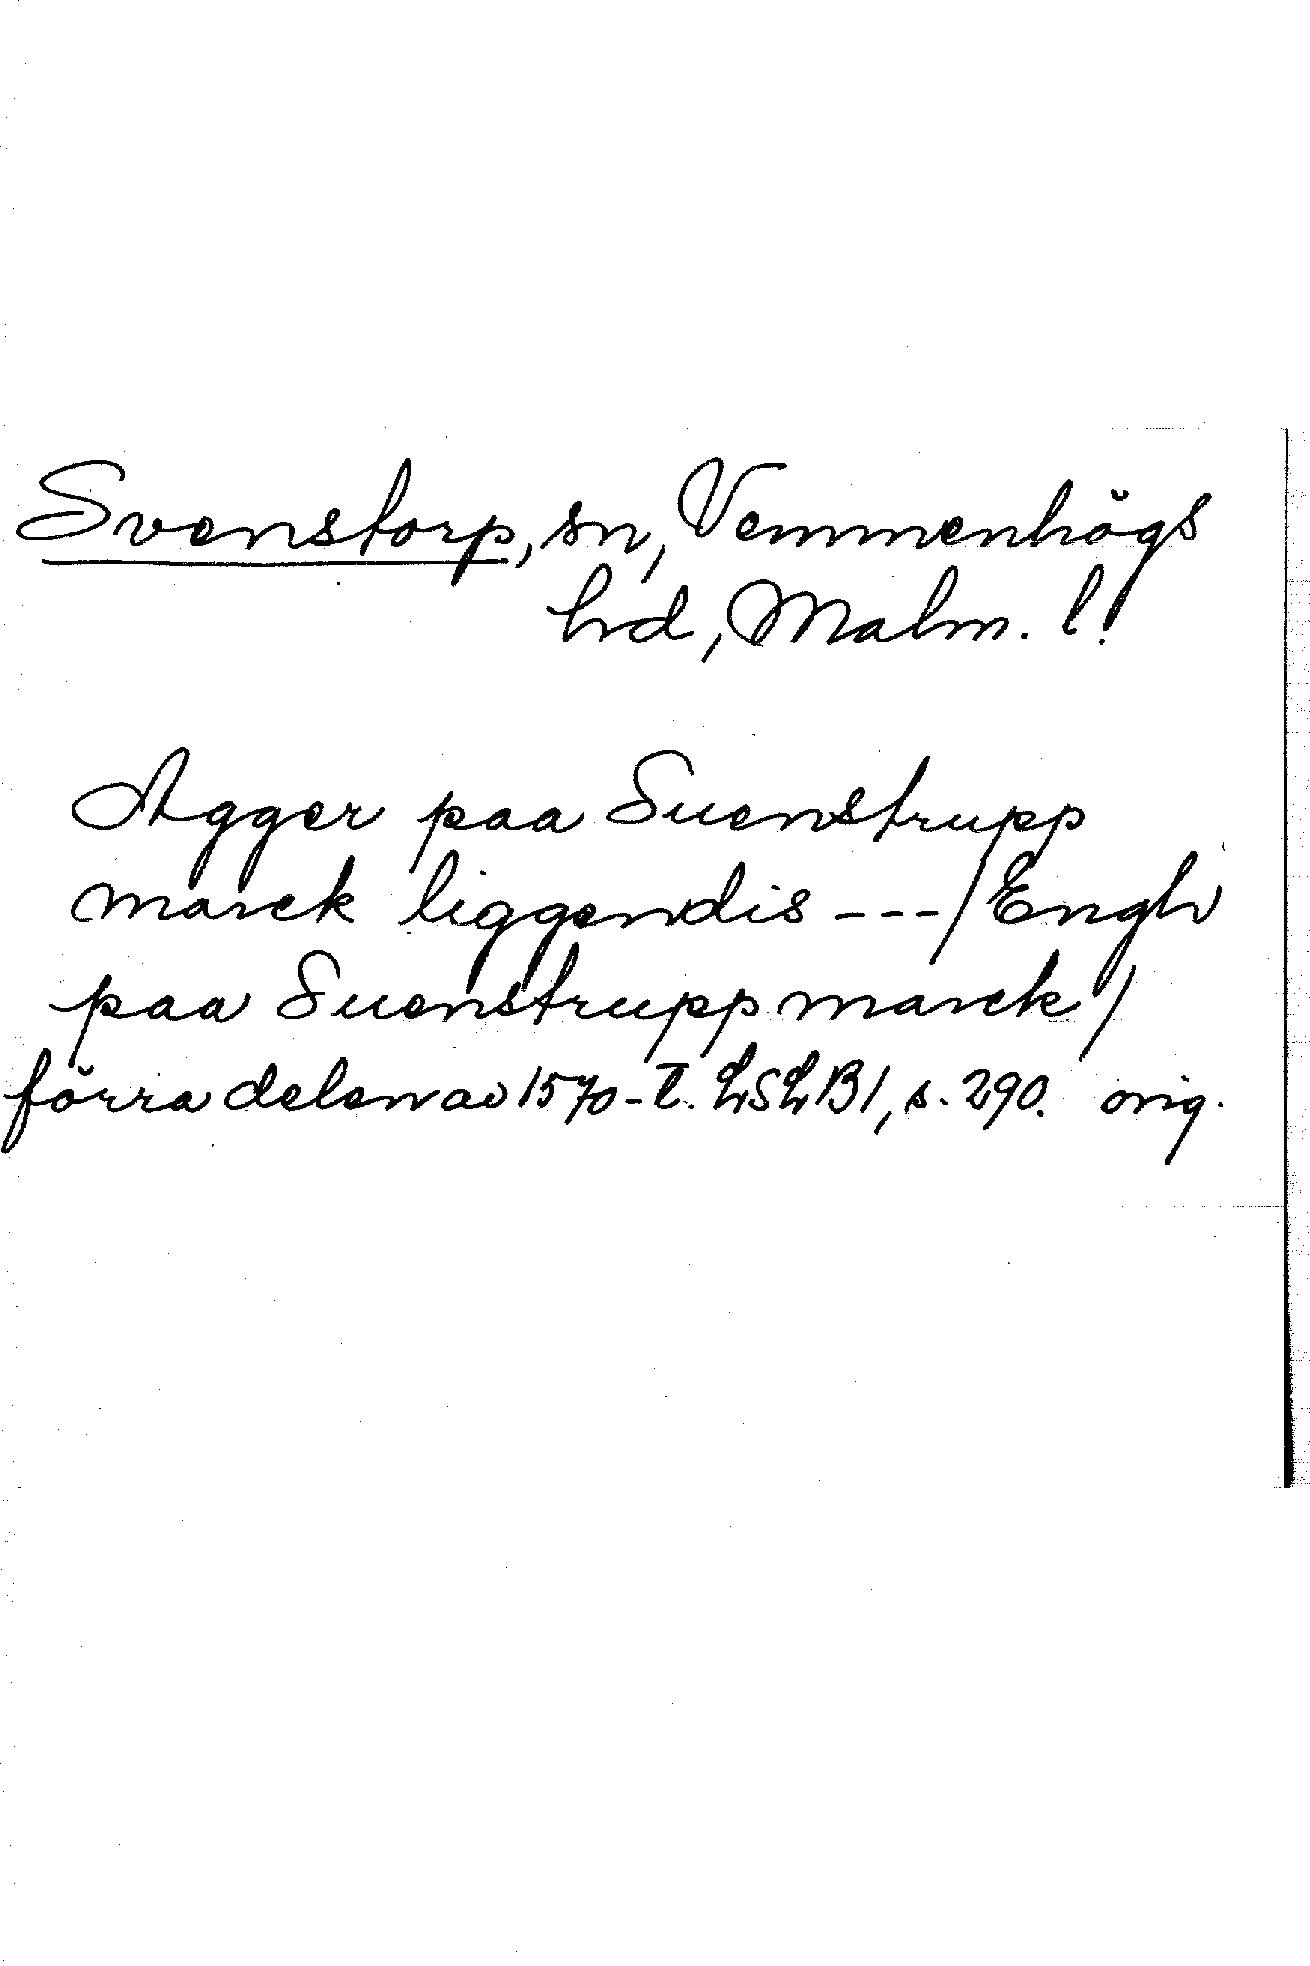 Svenstorp, sn, Vemmenhögs
hd, Malm. l.
Agger paa Suenstrupp
marck liggendis --- / Engh
paa Suenstrupp marck /
förra delen av 1570-t. LSLB 1, s. 290. orig.